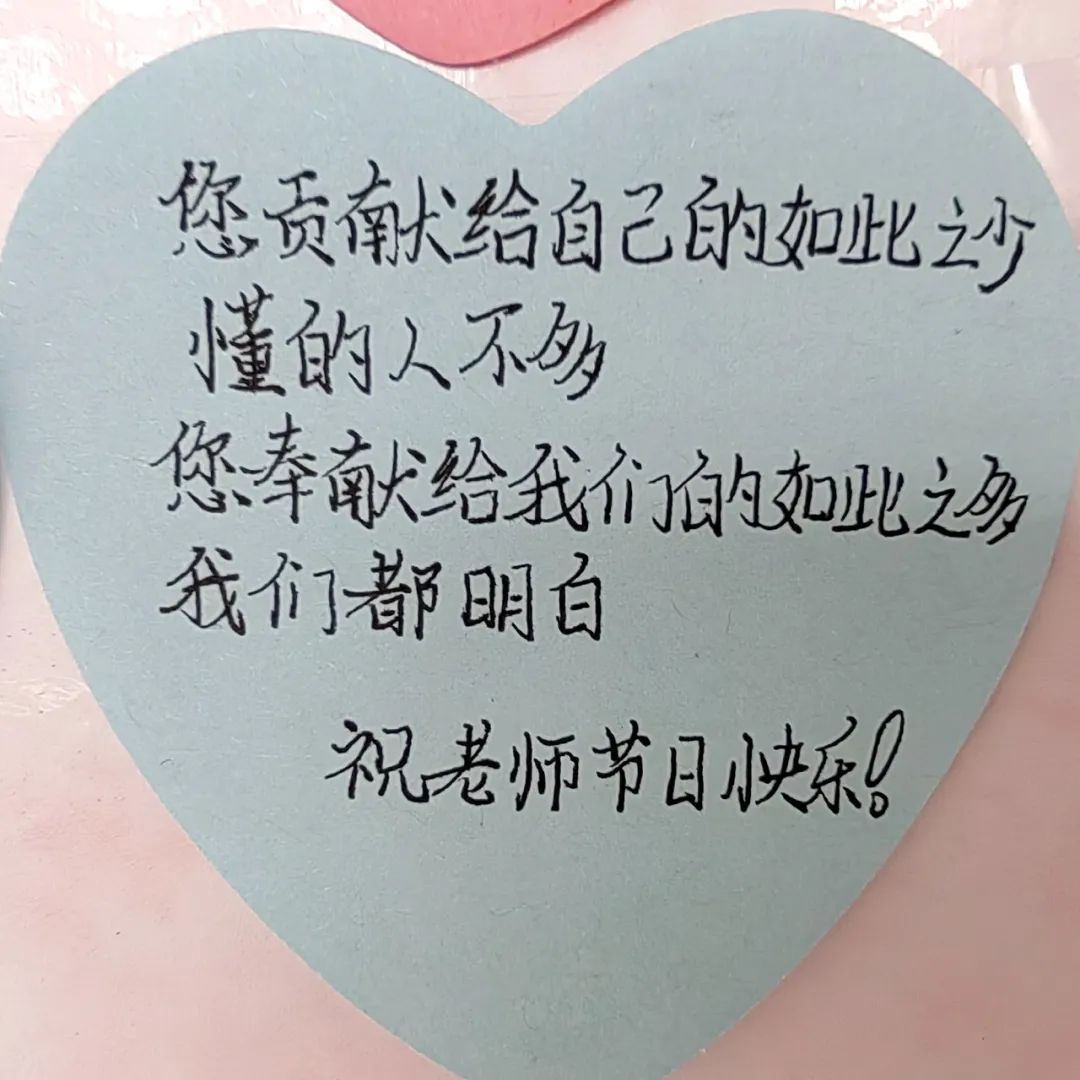 您贡献给自己的如此之少
懂的人不多
您奉献给我们的如此之多
我们都明白
祝老师节日快乐!